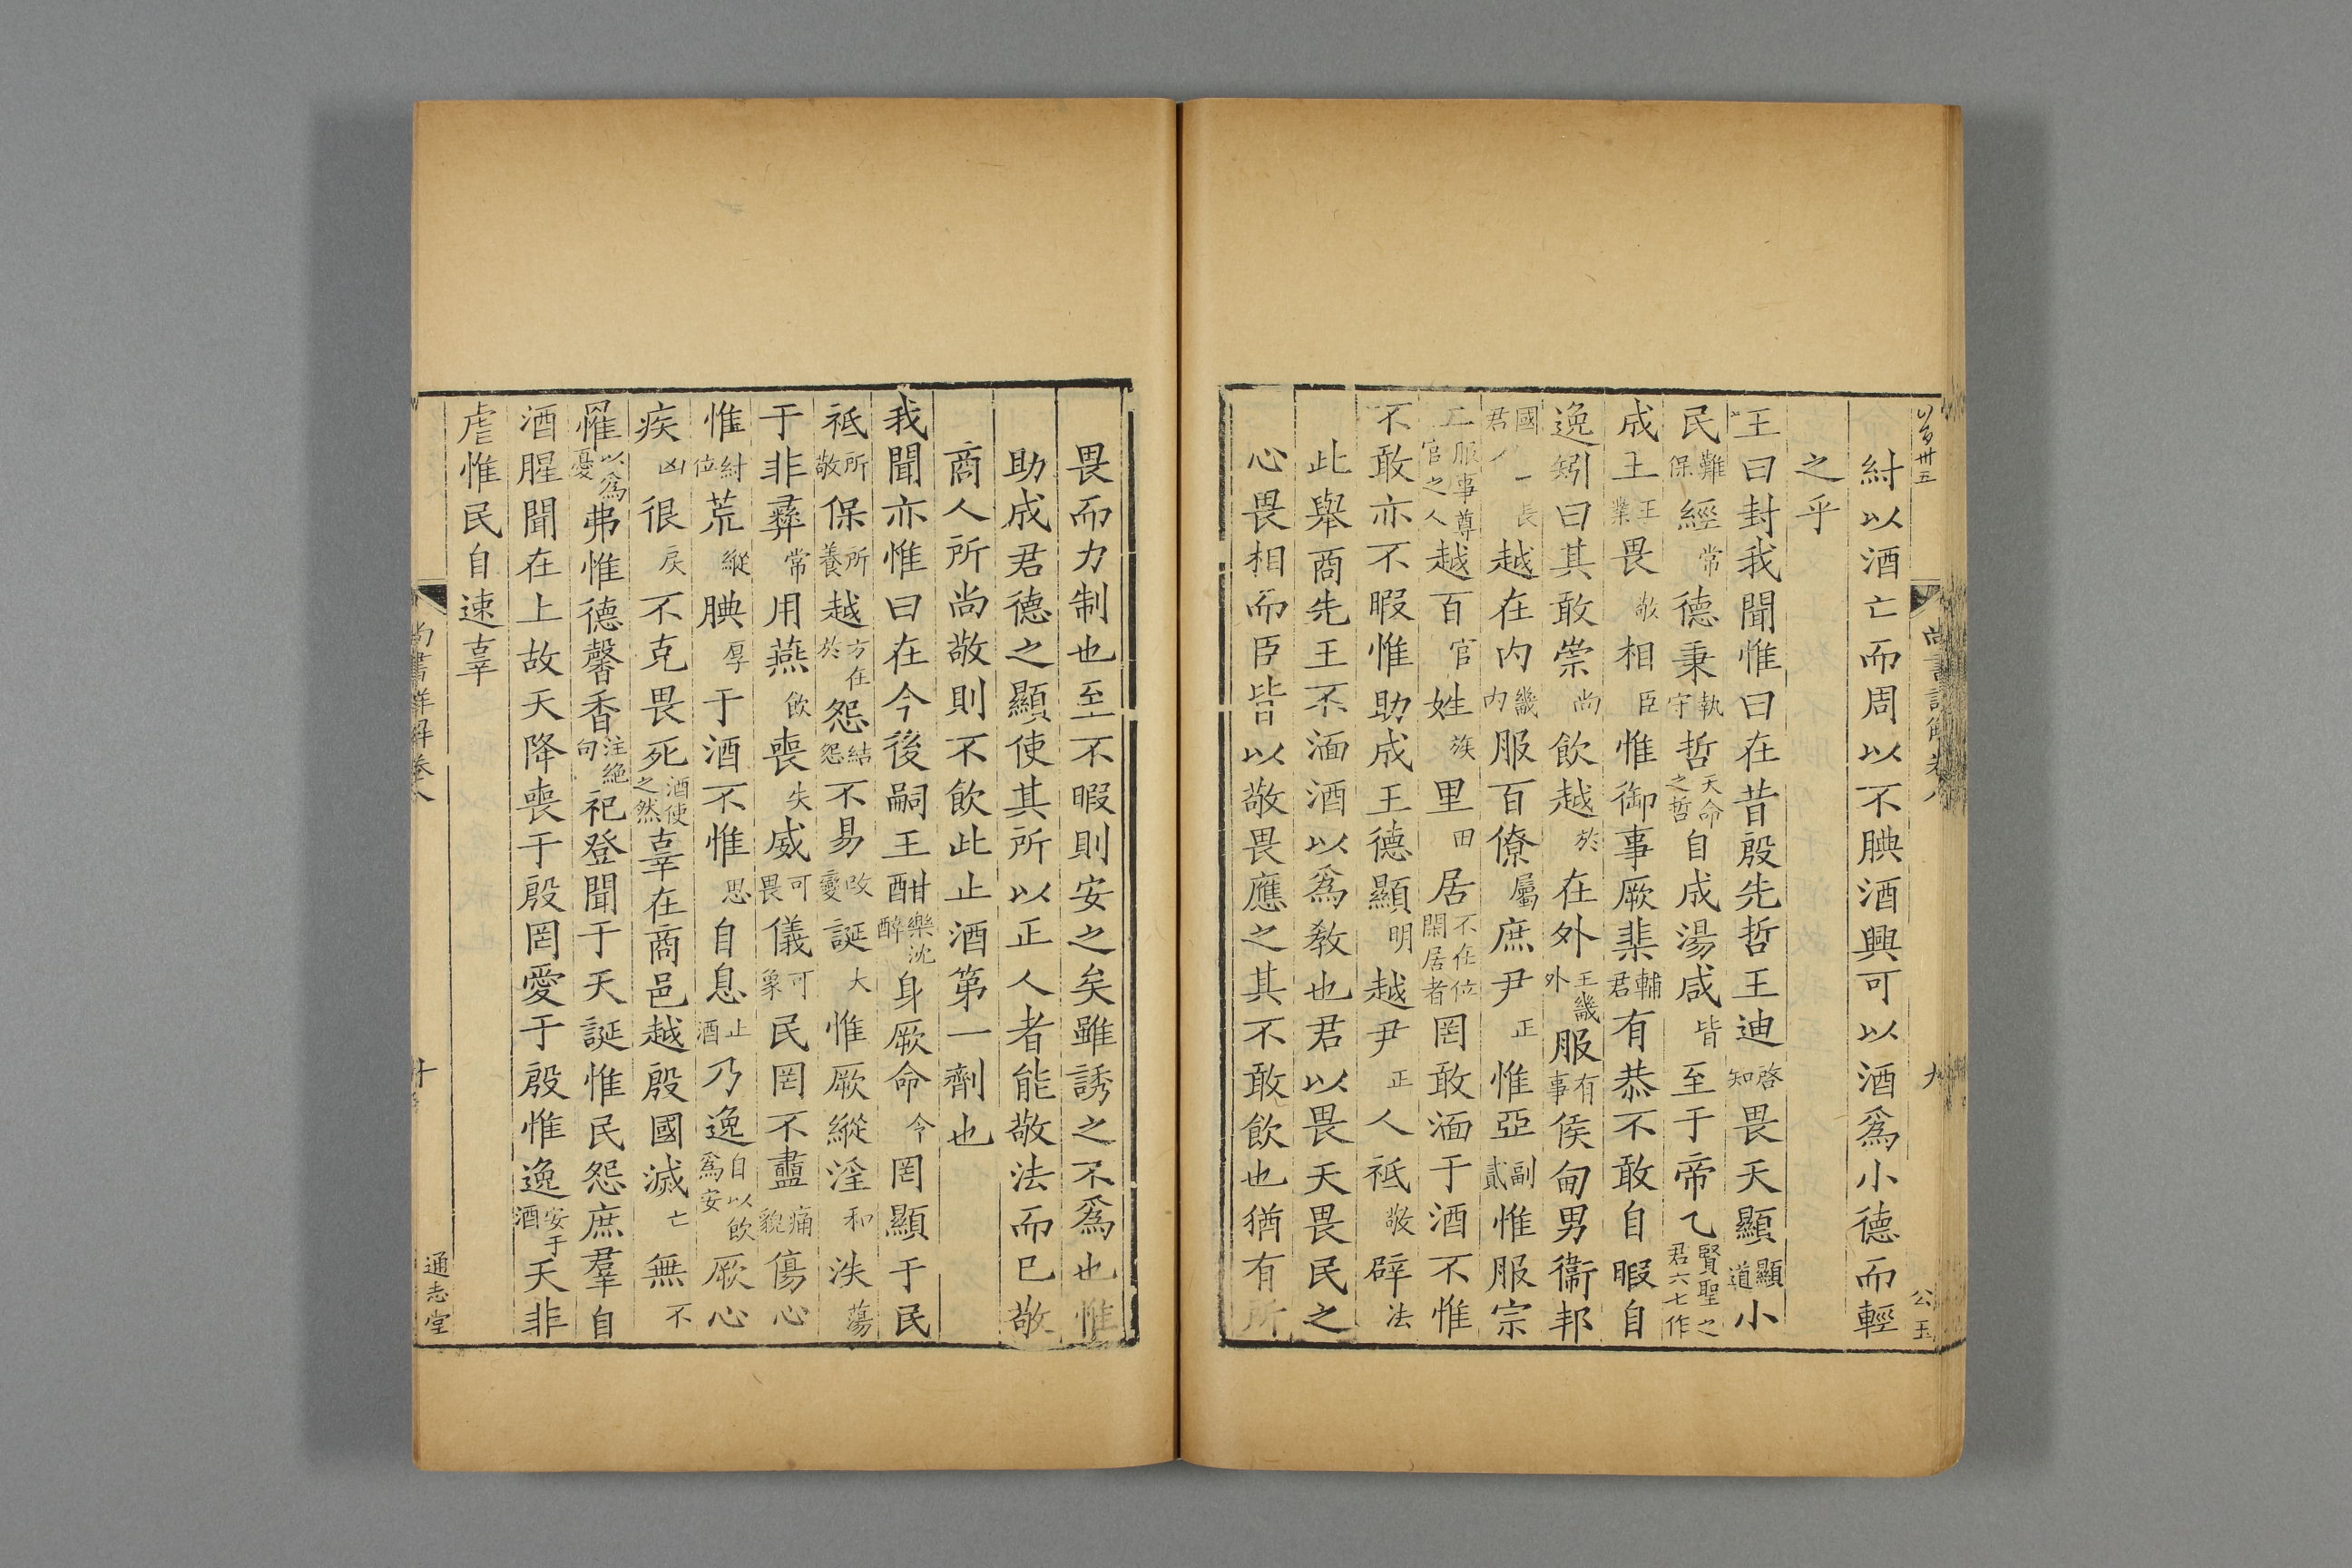 紂以酒亡而周以不腆酒興可以酒爲小德而輕
之乎
王曰封我聞惟曰在昔殷先哲王迪啓知畏天顯顯道小
民難保經常德秉執守哲天命之哲自成湯咸皆至于帝乙賢聖之君六七作
成王王業畏敬相臣惟御事厥棐輔君有恭不敢自暇自
逸矧曰其敢崇尚飲越於在外王畿外服有事侯甸男衞邦
國君長越在内畿内服百僚屬庶尹正惟亞副貳惟服宗
工服事尊官之人越百官姓族里田居不在位閑居者罔敢湎于酒不惟
不敢亦不暇惟助成王德顯明越尹正人祗敬辟法
此舉商先王不湎酒以爲敎也君以畏天畏民之
心畏相而臣皆以敬畏應之其不敢飲也猶有所
畏而力制也至不暇則安之矣雖誘之不爲也惟
助成君德之顯使其所以正人者能敬法而已敬
商人所尚敬則不飲此止酒第一劑也
我聞亦惟曰在今後嗣王酣樂沈酔身厥命令罔顯于民
祗所敬保所養越方在於怨結怨不易改變誕大惟厥縱淫和泆蕩
于非彝常用燕飲喪失威可畏儀可象民罔不衋痛貌傷心
惟紂位荒縱腆厚于酒不惟思自息止酒乃逸自以飲爲安厥心
疾凶很戾不克畏死酒使之然辜在商邑越殷國滅亡無不
罹以爲憂弗惟德馨香注絶句祀登聞于天誕惟民怨庶羣自
酒腥聞在上故天降喪于殷罔愛于殷惟逸安于酒天非
虐惟民自速辜
尚書詳解卷八
通志堂